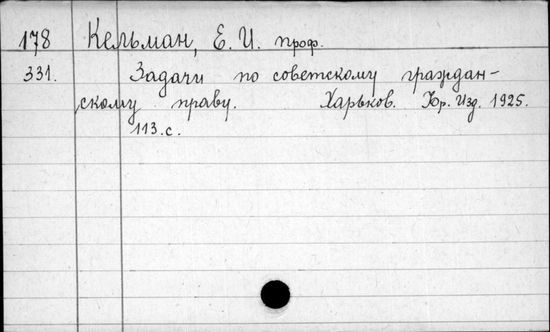 178 Кельман, Е. И. проф.
331. Задачи по советскому граждан-
скому праву. Харьков. Юр. Изд. 1925.
113. с.